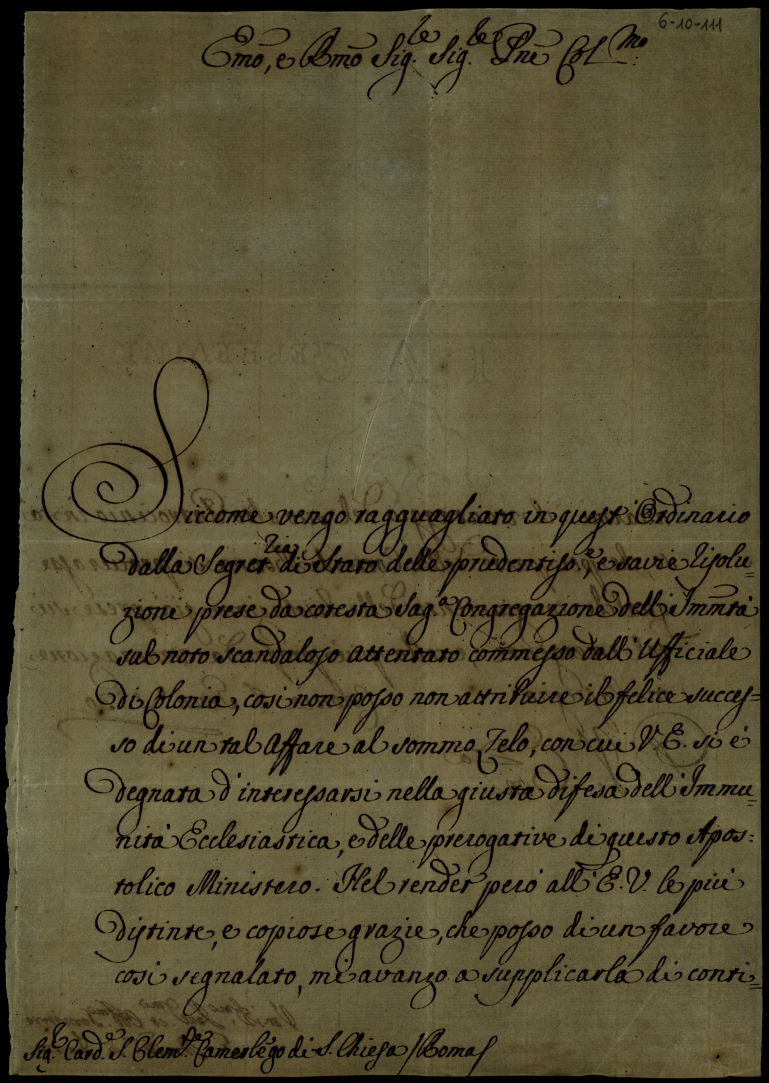 6-10-111
Emõ, e Rmõ Sig.re Sig.re Pne Col.mo
Siccome vengo ragguagliato in quest' Ordinario
dalla Segret.ria di Stato delle prudentiss.e, e savie risolu=
zioni prese da cotesta Sag.a Congregazione dell' Immtà
sul noto scandaloso attentato commesso dall' Ufficiale
di Colonia, così non posso non attribuire il felice succes=
so di un tal Affare al sommo Zelo, con cui V. E. si è
degnata d' interessarsi nella giusta difesa dell' Immu=
nità Ecclesiastica, e delle prerogative di questo Apos=
tolico Ministero. Nel render però all' E. V. le più
distinte, e copiose grazie, che posso di un favore
così segnalato, mi avanzo a supplicarla di conti=
Sig.r Card.e S. Clem.te Camerlego di S. Chiesa / Roma /